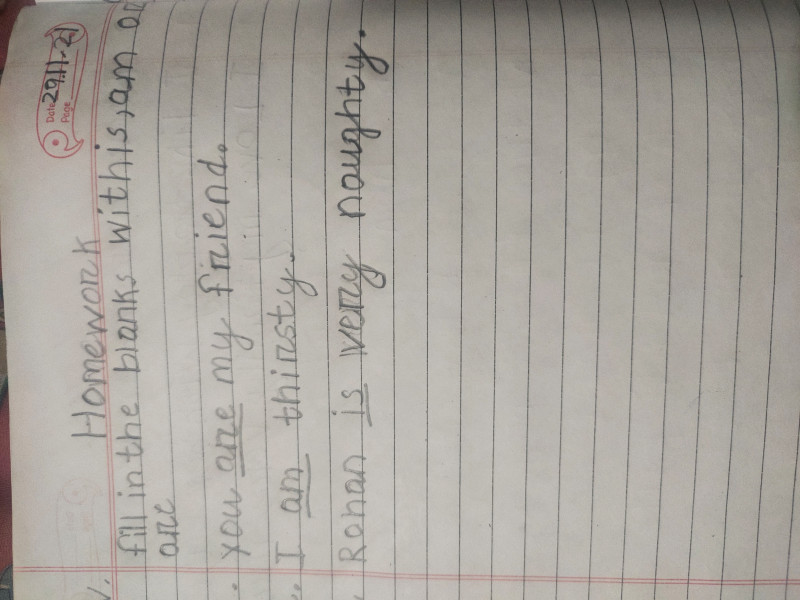 Date 29.11.21
Page
Homework
fill in the blanks with is, am or
are
you are my friend.
I am thirsty.
Rohan is very noughty.